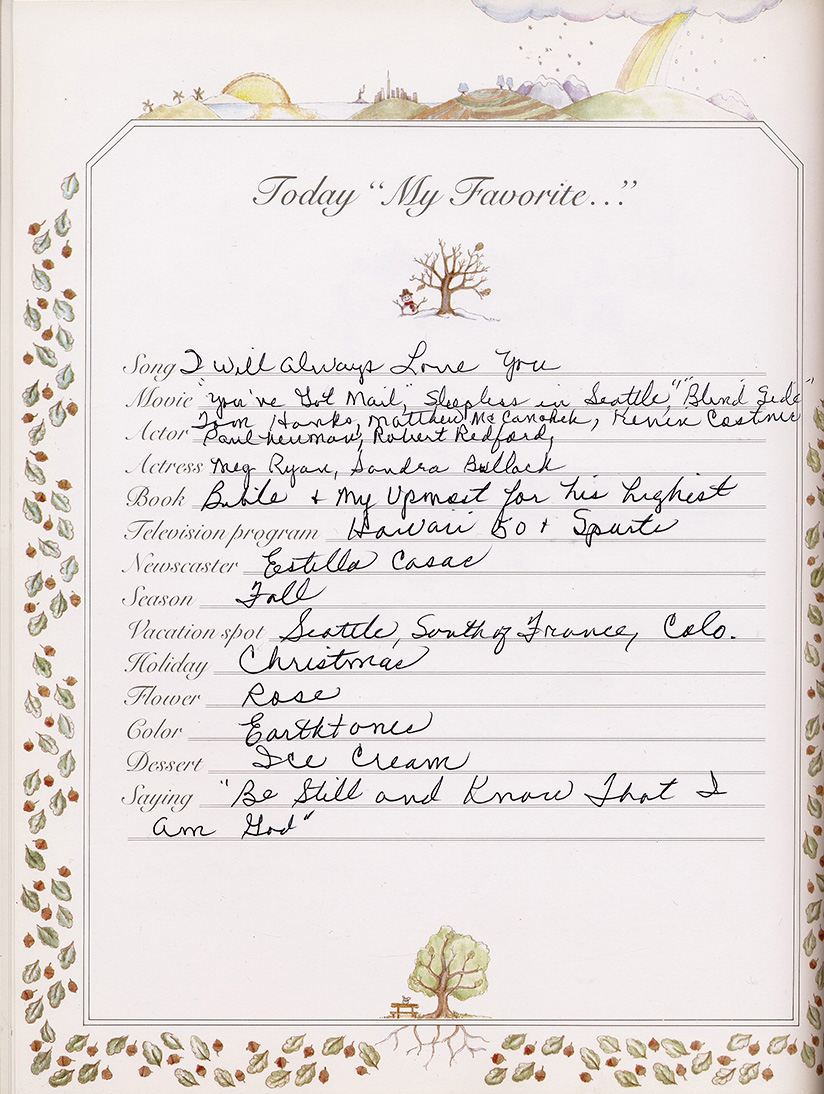 Today “My Favorite...”
Song I Will Always Love You
Movie "You've Got Mail", Sleepless in Seattle," "Blind Side"
Tom Hanks, Matthew McCanohek, Kevin Costner
Actor Paul Newman, Robert Redford,
Actress Meg Ryan, Sandra Bullock
Book Bible + My Upmost for his highest
Television program Hawaii 50 + Sports
Newscaster Estella Casas
Season Fall
Vacation spot Seattle, South of France, Colo.
Holiday Christmas
Flower Rose
Color Earthtones
Dessert Ice Cream
Saying "Be Still and Know That I
am God"